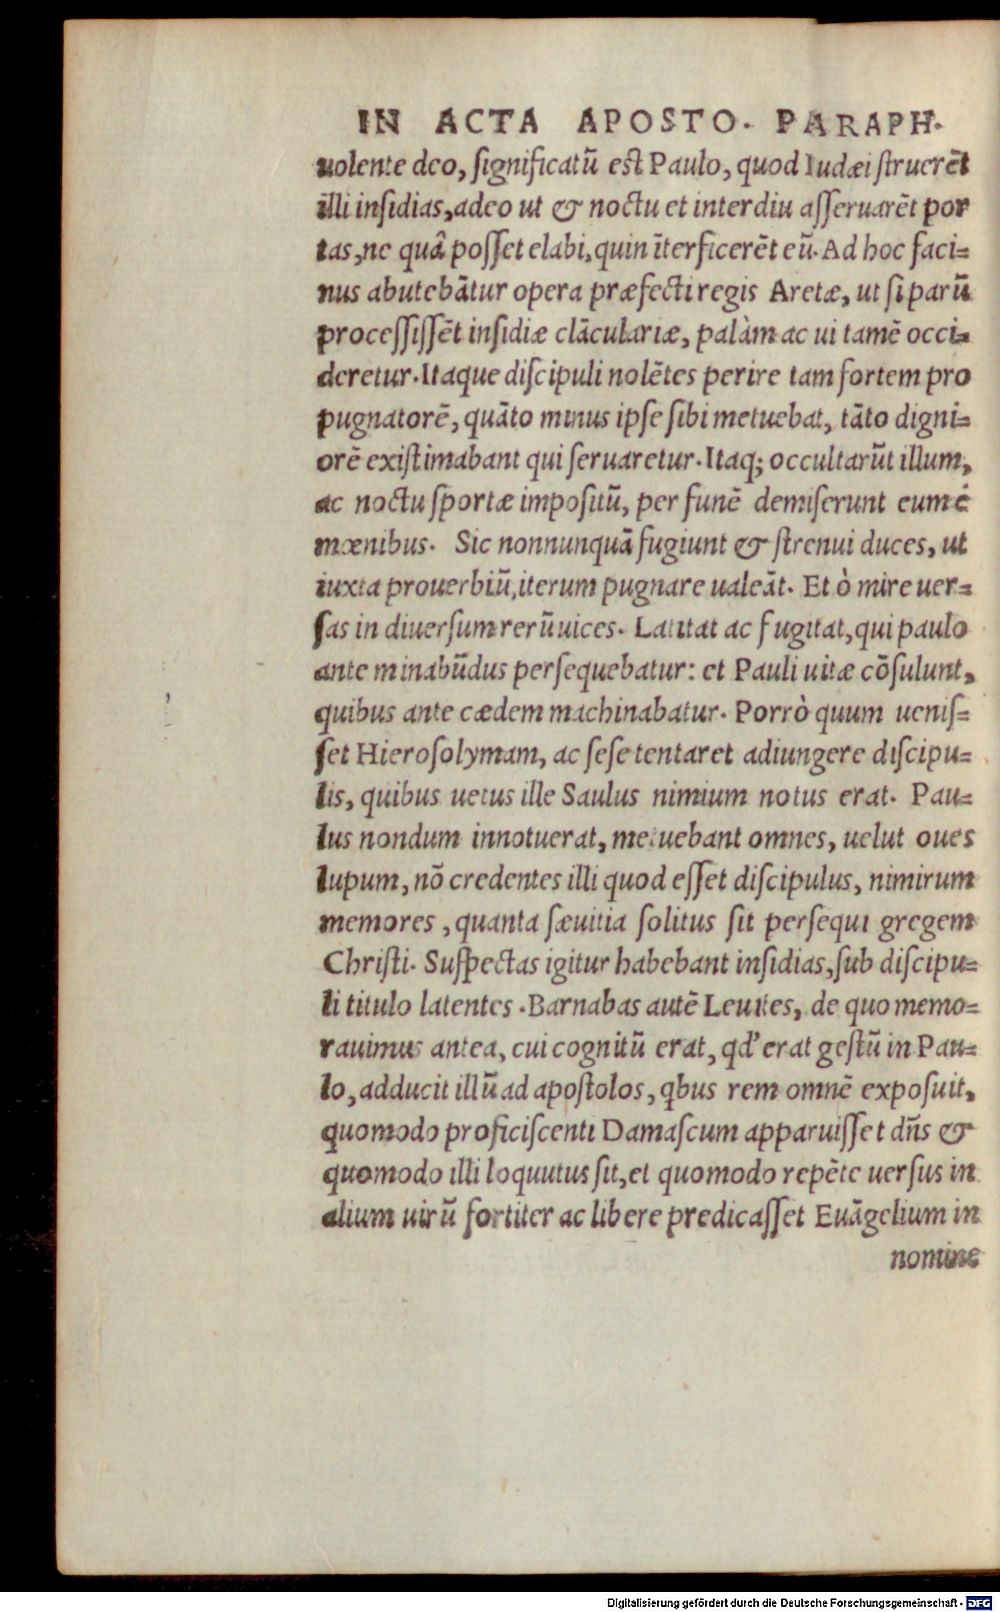 IN ACTA APOSTO. PARAPH.
uolente deo, ſignificatū est Paulo, quod Iudæi ſtruerēt
illi inſidias, adeo ut & noctu et interdiu aſſeruarēt por
tas, ne quâ poſſet elabi, quin īterficerēt eū. Ad hoc faci=
nus abutebātur opera præfecti regis Aretæ, ut ſi parū
proceſſiſſēt inſidiæ clāculariæ, palàm ac ui tamē occi=
deretur. Itaque diſcipuli nolētes perire tam fortem pro
pugnatorē, quāto minus ipſe ſibi metuebat, tāto digni=
orē exiſtimabant qui ſeruaretur. Itaq; occultarūt illum,
ac noctu ſportæ impoſitū, per funē demiſerunt eum é
mœnibus. Sic nonnunquā fugiunt & ſtrenui duces, ut
iuxta prouerbiū, iterum pugnare ualeāt. Et ò mire uer=
ſas in diuerſum rerū uices. Latitat ac fugitat, qui paulo
ante minabūdus perſequebatur: et Pauli uitæ cōſulunt,
quibus ante cædem machinabatur. Porrò quum ueniſ=
ſet Hieroſolymam, ac ſeſe tentaret adiungere diſcipu=
lis, quibus uetus ille Saulus nimium notus erat. Pau=
lus nondum innotuerat, metuebant omnes, uelut oues
lupum, nō credentes illi quod eſſet diſcipulus, nimirum
memores, quanta ſæuitia ſolitus ſit perſequi gregem
Chriſti. Suſpectas igitur habebant inſidias, ſub diſcipu=
li titulo latentes. Barnabas autē Leuites, de quo memo=
rauimus antea, cui cognitū erat, qd' erat geſtū in Pau=
lo, adducit illū ad apoſtolos, qbus rem omnē expoſuit,
quomodo proficiſcenti Damaſcum apparuiſſet dñs &
quomodo illi loquutus ſit, et quomodo repēte uerſus in
alium uirū fortiter ac libere predicaſſet Euāgelium in
nomine
Digitalisierung gefördert durch die Deutsche Forschungsgemeinschaft - DFG